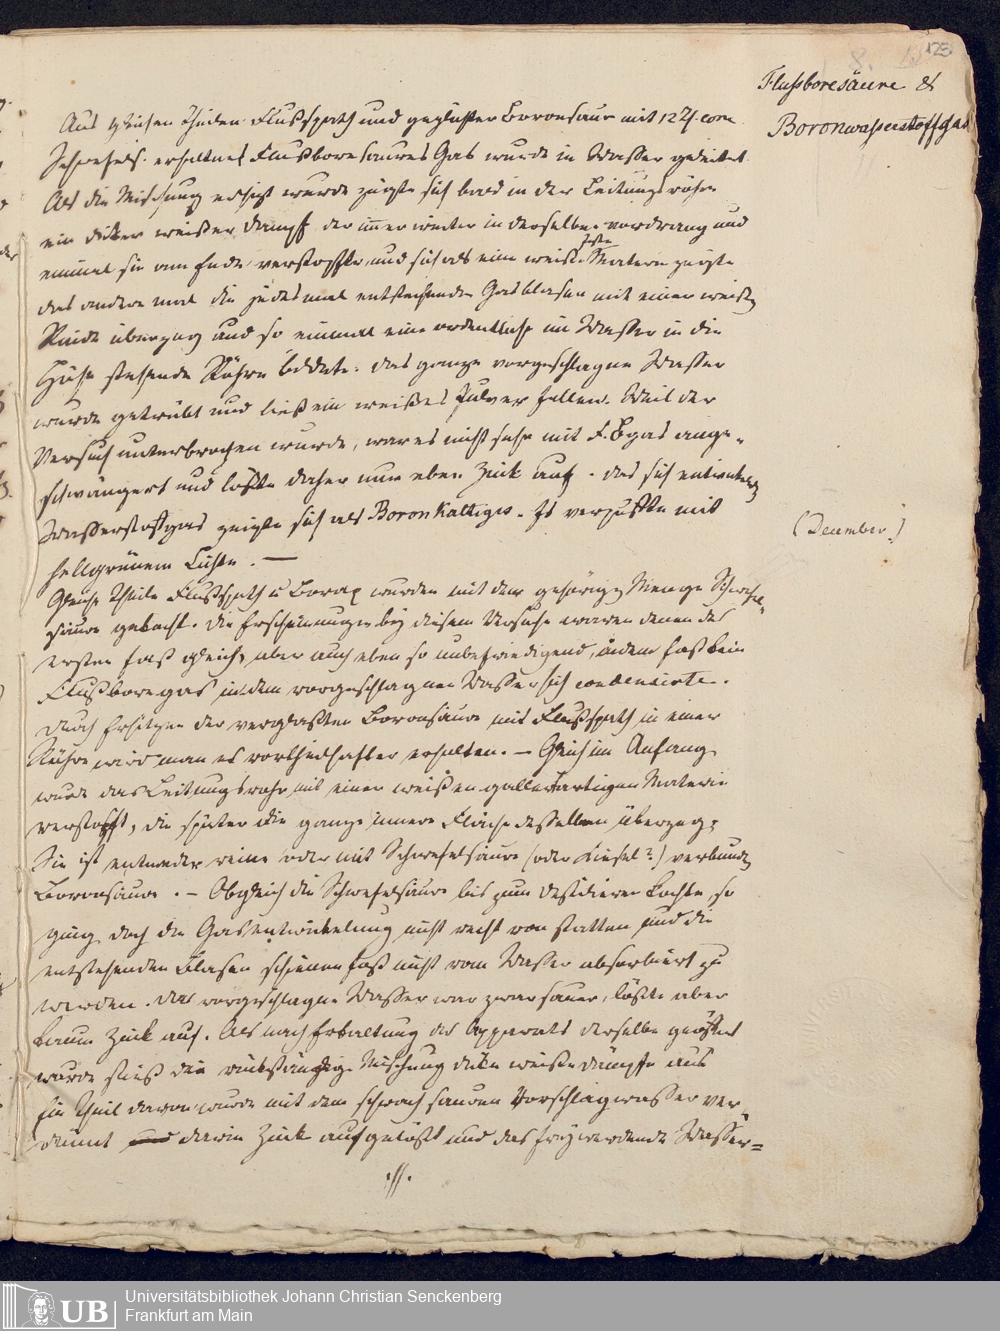 123
Flußboresäure &
Boronwasserstoffgas
Aus gleichen Theilen Flußspath und geglühter Boronsäure mit 12 Th. conc.
Schwefels. erhaltnes Flußboresaures Gas wurde in Wasser geleitet.
Als die Mischung erhizt wurde zeigte sich bald in der Leitungsröhre
ein dicker weißer Dampf der immer weiter in derselben vordrang und
einmal sie am Ende verstopfte, und sich als eine weiße feste Materie zeigte
das andere mal die jedesmal entstehenden Gasblasen mit einer weißen
Rinde überzog und so einmal eine ordentliche im Wasser in die
Höhe stehende Röhre bildete. das ganze vorgeschlagne Wasser
wurde getrübt und ließ ein weißes Pulver fallen. Weil der
Versuch unterbrochen wurde, war es nicht sehr mit F.B gas ange-
schwängert und löste daher nur eben Zink auf. das sich entwickelnde
Wasserstoffgas zeigte sich als Boronhaltiges. Es verpuffte mit
hellgrünem Lichte. —
(December.)
Gleiche Theile Flußspath u Borax wurden mit der gehörigen Menge Schwefel-
säure gekocht. die Erscheinungen bey diesem Versuche waren denen des
ersten fast gleich, aber auch eben so unbefriedigend, indem fast kein
Flußboregas in dem vorgeschlagnen Wasser sich condensirte.
Durch Erhitzen der verglasten Boronsäure mit Flußspath in einer
Röhre wird man es vortheilhafter erhalten. — Gleich im Anfang
wurde das Leitungsrohr mit einer weißen gallertartigen Materie
verstopft, die später die ganze innere Fläche desselben überzog;
Sie ist entweder reine oder mit Schwefelsäure (oder Kiesel?) verbundne
Boronsäure. — Obgleich die Schwefelsäure bis zum Destilliren kochte, so
ging doch die Gasentwickelung nicht recht von statten und die
entstehenden Blasen schienen fast nicht vom Wasser absorbiert zu
werden. das vorgeschlagne Wasser war zwar sauer, löste aber
kaum Zink auf. Als nach Erkaltung des Apparats derselbe geöffnet
wurde stieß die rückständige Mischung dicke weiße dämpfe aus
Ein Theil davon wurde mit dem schwach sauren Vorschlagwasser ver-
dünnt darin Zink aufgelößt und das freywerdende Wasser=
.//.
UB
Universitätsbibliothek Johann Christian Senckenberg
Frankfurt am Main